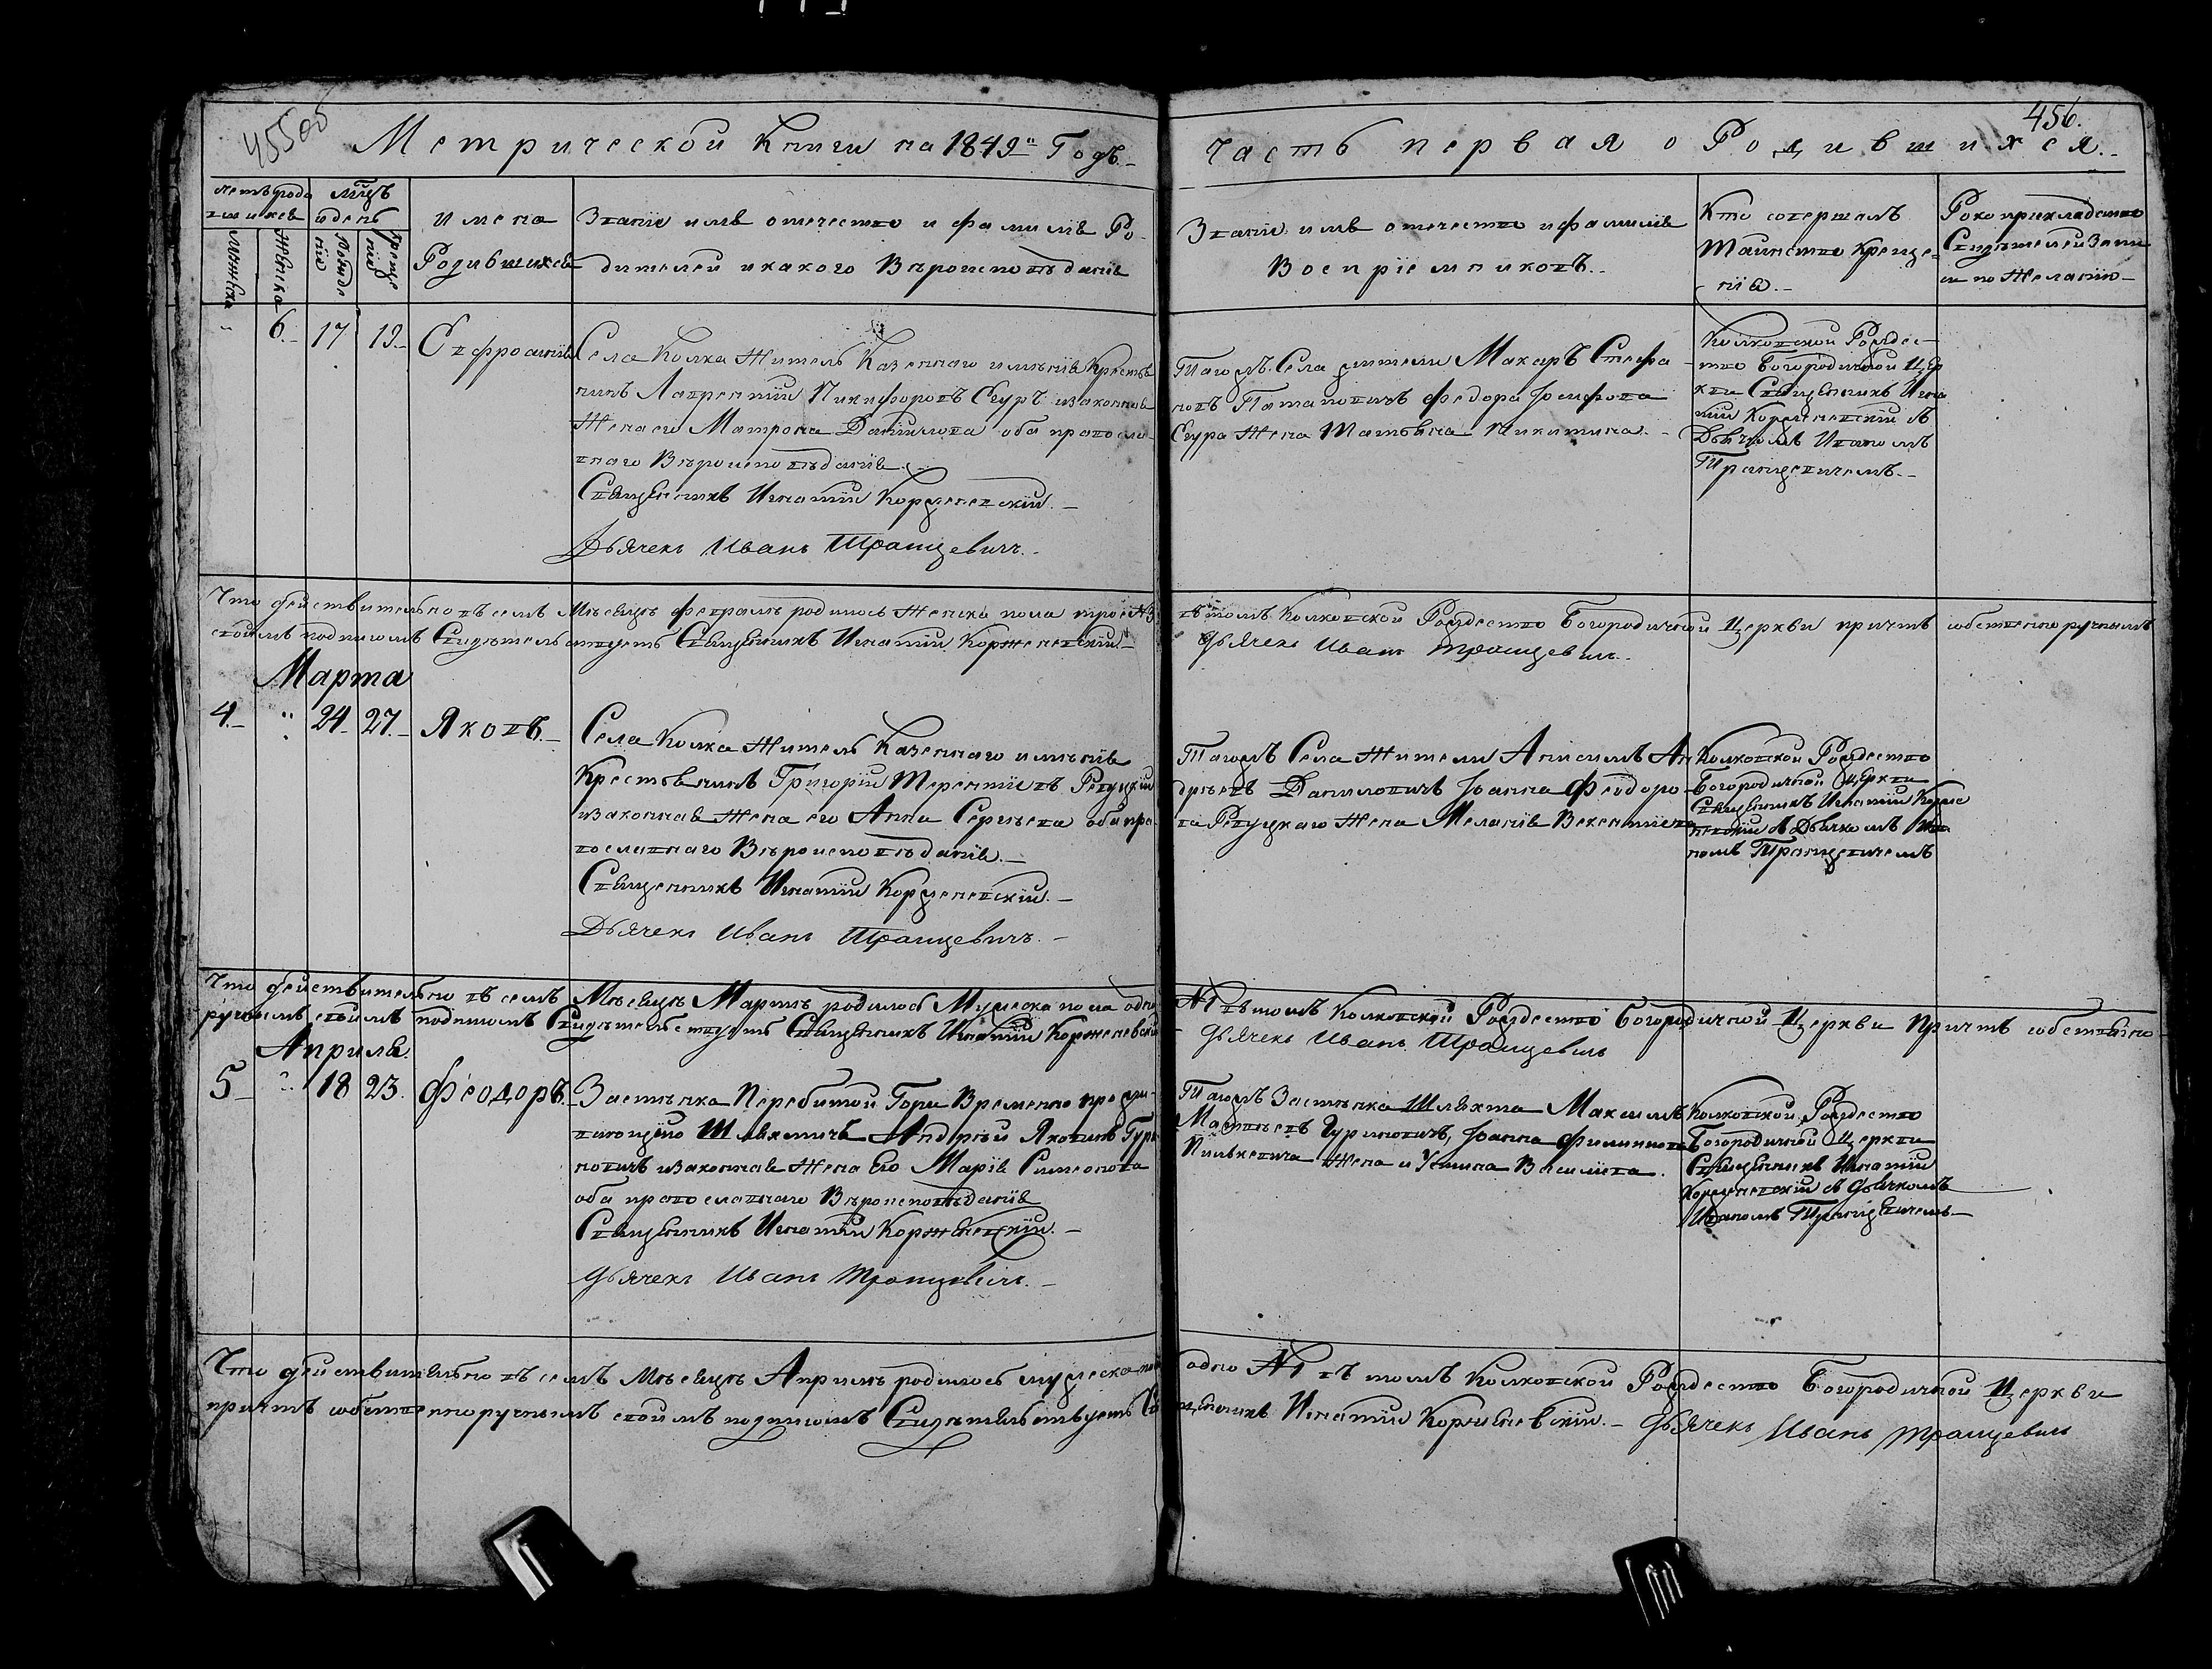 455об
456.
Метрической Книги на 1849й Годъ
Часть первая о Родившихся.
Мцъ
и день
Имена
Родившихся
Званіе имя отечество и фамилія Ро-
дителей и какого Вѣроисповѣданія
Званіе имя отечество и фамилія
Воспріемниковъ.
Кто совершалъ
Таинство Креще-
нія.
Рукоприкладство
Свидѣтелей Запи
си по Желанію
Мужеска
Женска
Рожде
нія
Креще
нія
6. 17 19. Евфросинія
Села Колка Житель Казеннаго имѣнія Крестья
нинъ Лаврентій Никифоровъ Сгуръ и законная
Жена его Матрона Даниилова оба правосла-
внаго Вѣроисповѣданія.
Священникъ Игнатій Корженевскій.
Дьячекъ Иванъ Транцевичъ.
Тагожъ Села жители Макаръ Стефа
новъ Потаповичъ Федора Іосифова
Сгура Жена Татьяна Никитина.
Колковской Рождес-
тво Богородичной Цер
кви Священникъ Игна
тій Корженевскій съ
Дьячкомъ Иваномъ
Транцевичемъ.
Что действительно въ семъ Мѣсяцѣ Февралѣ родилось Женска пола трое №3
въ томъ Колковской Рождество Богородичной Церкви причтъ собственноручнымъ
своимъ подписомъ Свидѣтельствуетъ Священникъ Игнатій Корженевскій
Дьячекъ Иванъ Транцевичъ.
Марта
4. " 24 27. Яковъ.
Села Колка Житель Казеннаго имѣнія
Крестьянинъ Григорій Терентіевъ Редуцкій
и законная Жена его Анна Сергѣева оба пра-
вославнаго Вѣроисповѣданія.
Священникъ Игнатій Корженевскій.
Дьячекъ Иванъ Транцевичъ.
Тагожъ Села Жители Анисимъ Ан
дрѣевъ Даниловичъ Іоанна Феодоро
ва Редуцкаго Жена Меланія Викентіева
Колковской Рождество
Богородичной Церкви
Священникъ Игнатій Корже
невскій съ Дьячкомъ Ива
номъ Транцевичемъ
Что действительно въ семъ Мѣсяцѣ Мартѣ родилось Мужеска пола одно
№1 въ томъ Колковской Рождество Богородичной Церкви Причтъ собственно
ручнымъ своимъ подписомъ Свидѣтельствуетъ Священникъ Игнатій Корженевскій
Дьячекъ Иванъ Транцевичъ
Апрѣля
5 " 18 23. Феодоръ.
Застѣнка Перебитой Гори Временно прожи-
вающій Шляхтичъ Андрей Яковлевъ Гури
новичъ и законная Жена Его Марія Симеонова
оба православнаго Вѣроисповѣданія
Священникъ Игнатій Корженевскій.
Дьячекъ Иванъ Транцевичъ.
Тагожъ Застѣнка Шляхта Максимъ
Матвѣевъ Гуриновичъ, Іоанна Филиппова
Жена Устина Василіева.
Колковской Рождество
Богородичной Церкви
Священникъ Игнатій
Корженевскій съ Дьячкомъ
Иваномъ Транцевичемъ
Что действительно въ семъ Мѣсяцѣ Апрѣлѣ родилось мужеска пола
одно №1 въ томъ Колковской Рождество Богородичной Церкви
причтъ собственноручнымъ своимъ подписомъ Свидѣтельствуетъ Свя
щенникъ Игнатій Корженевскій. Дьячекъ Иванъ Транцевичъ